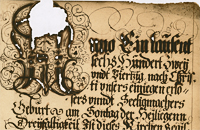 Anno Ein tausent
sechs Hundert Zwey
undt Viertzig, nach Chri
sti unsers einigen erlo
sers unndt Seeligmachers
Geburt auf am Sontag der Heiligenn
Dreifaltigkeit Ist dieses Kirchen